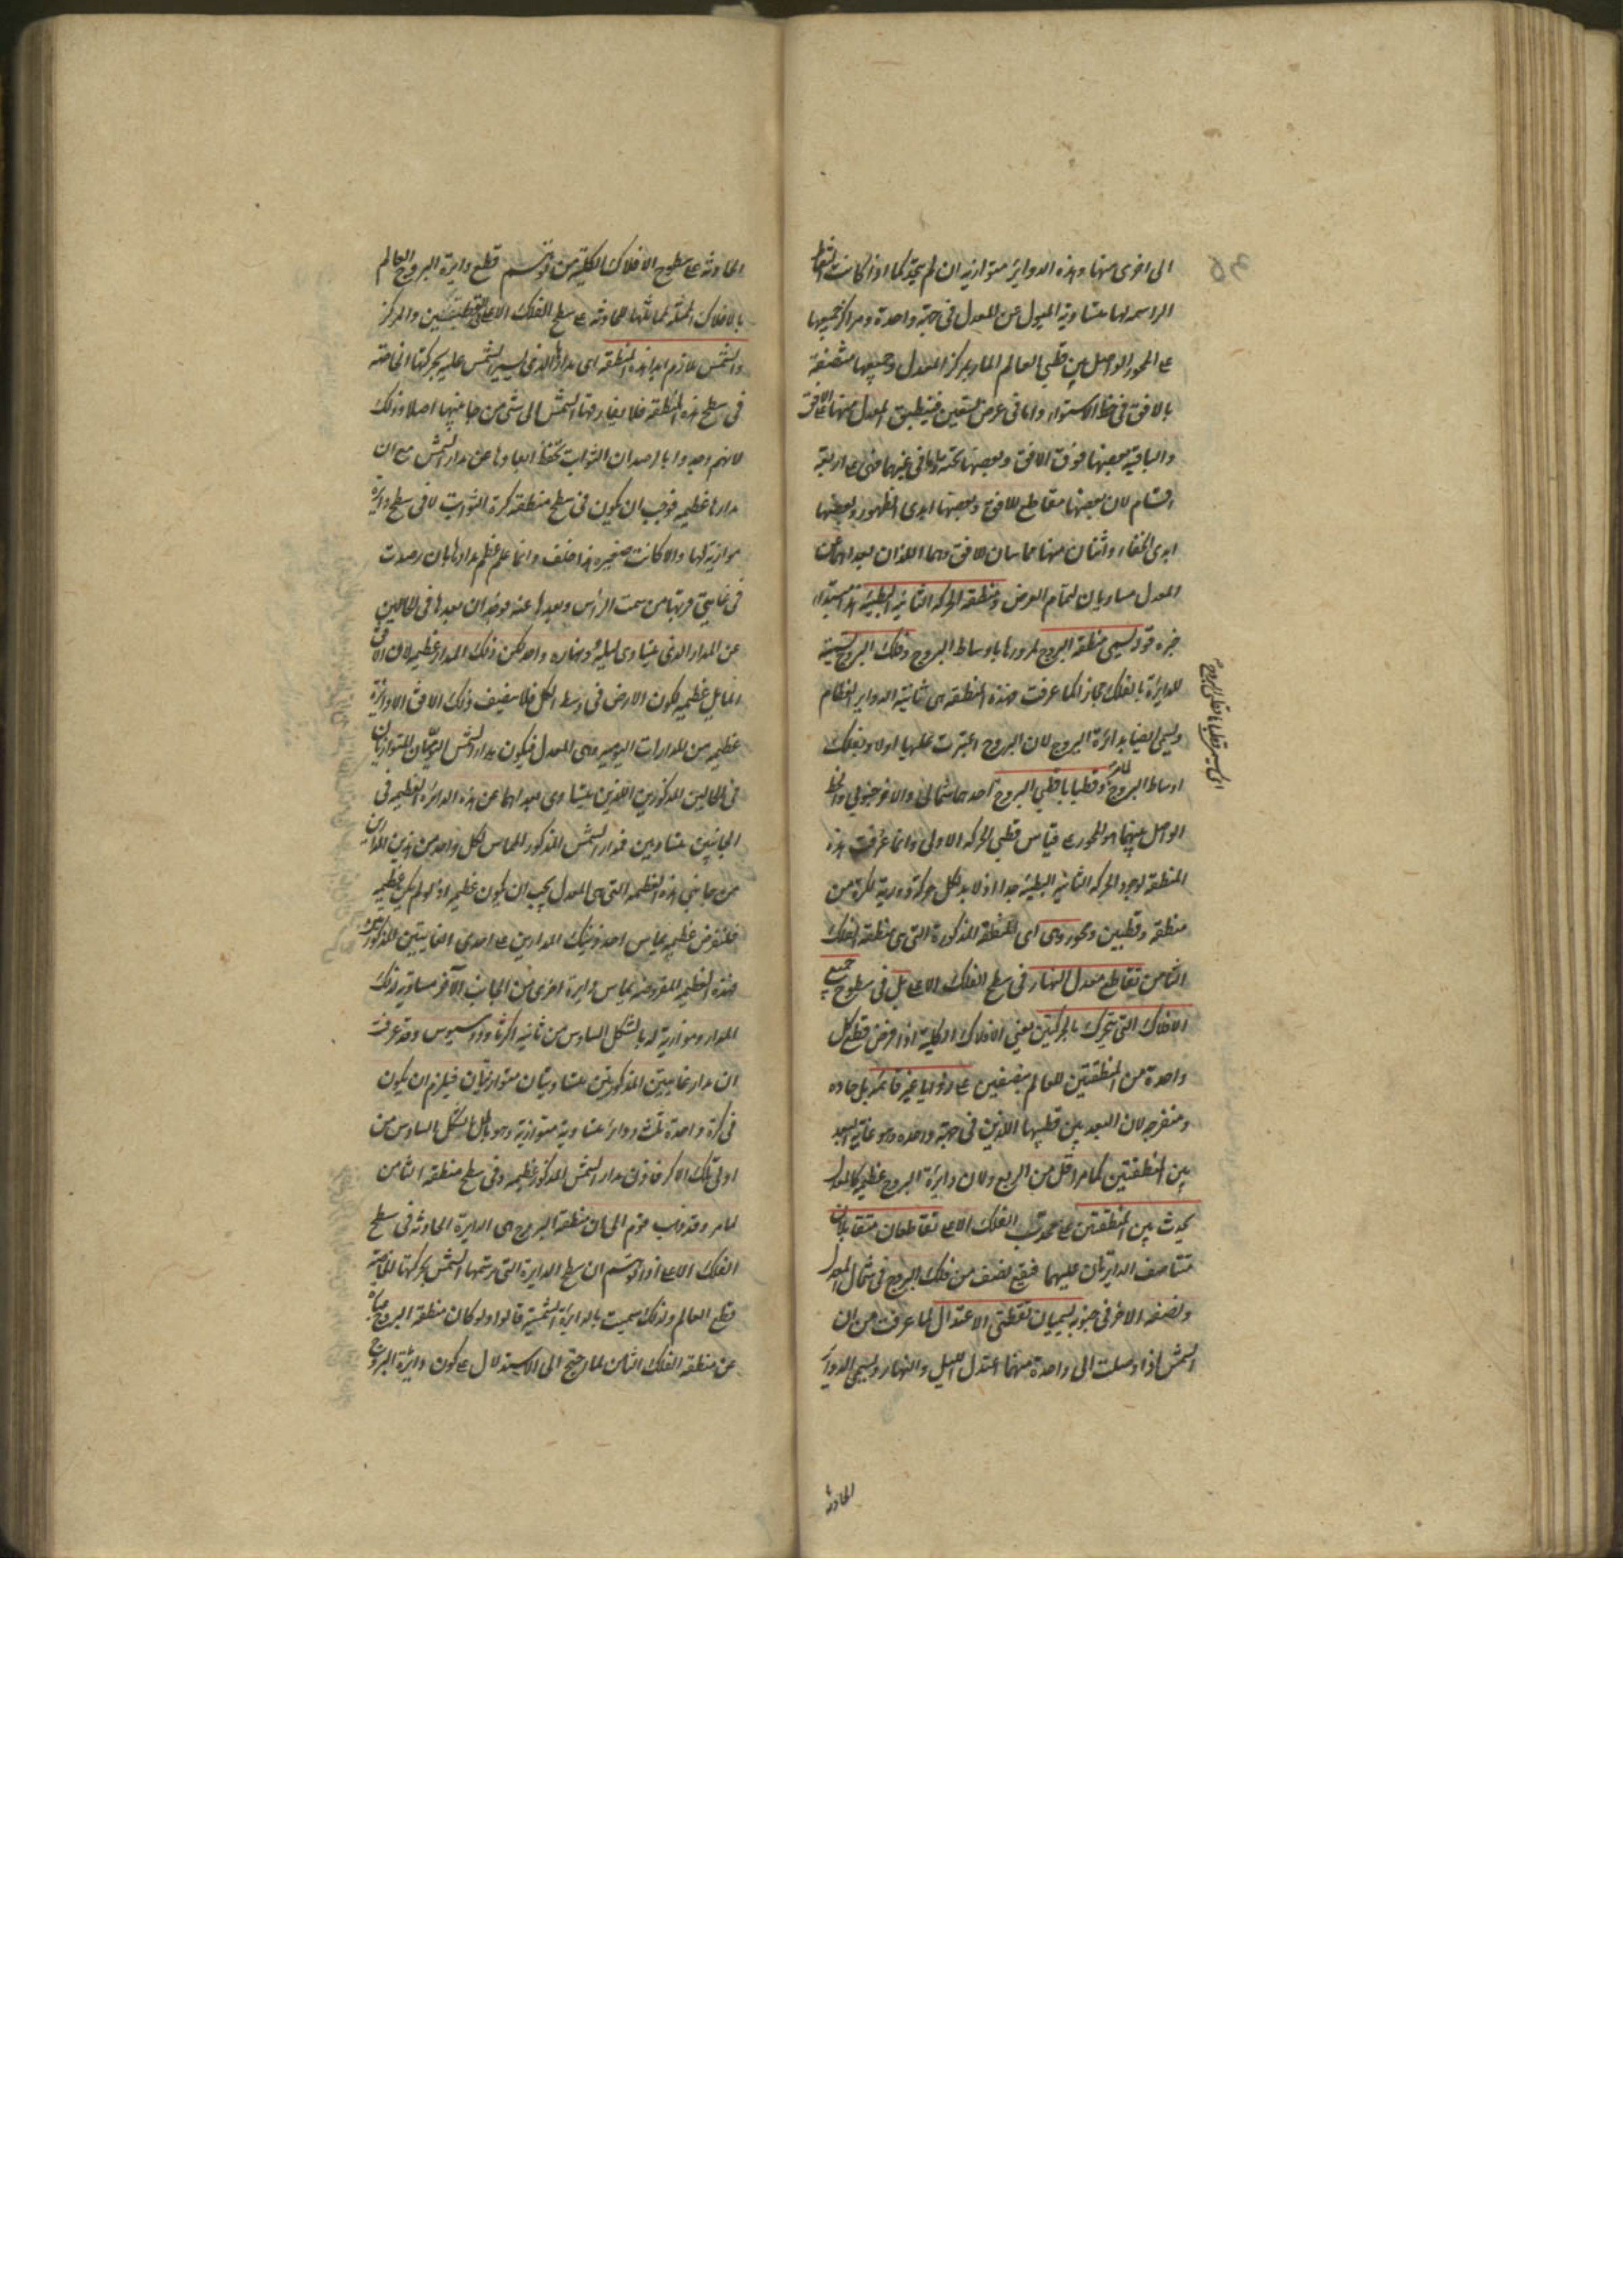 الى اخرى منها وهذه الدواير متوازية ان لم يتحد كما اذا كانت النقط
الراسمة لها متساوية الميول عن المعدل فى جهة واحدة ومراكز جميعها
على المحور الواصل بين قطبى العالم المار بمركز المعدل وجميعها منتصفة
بالافق فى خط الاستواء واما فى عرض تسعين فينطبق المعدل منها على الافق
والباقية بعضها فوق الافق وبعضها تحته واما فى غيرهما فهى على اربعة
اقسام لان بعضها مقاطع للافق وبعضها ابدى الظهور وبعضها
ابدى الخفاء واثنان منها مماسان للافق وهما اللذان بعدهما عن
المعدل مساويان لتمام العرض ومنطقة الحركة الثانية البطيئة
وتسمى منطقة البروج لمرورها باوساط البروج وفلك البروج تسمية
للدايرة بالفلك مجازا كما عرفت فهذه المنطقة هى ثانية الدواير العظام
وتسمى ايضا بدائرة البروج لان البروج اعتبرت عليها اولا وبفلك
اوساط البروج لما مر وقطباها قطبى البروج احدهما شمالى والاخر جنوبى والخط
الواصل بينهما هو المحور على قياس قطبى الحركة الاولى وانما عرفت هذه
المنطقة لوجود الحركة الثانية البطيئة جدا اذ لا بد لكل حركة دورية لكرة من
منطقة وقطبين ومحور وهى اى المنطقة المذكورة التى هى منطقة الفلك
الثامن تقاطع معدل النهار فى سطح الفلك الاعلى بل فى سطوح جميع
الافلاك التى تتحرك بالحركتين يعنى الافلاك الكلية اذا فرض قطع كل
واحدة من المنطقتين للعالم بنصفين على زوايا غير قائمة بل حادة
ومنفرجة لان البعد بين قطبيهما اللذين فى جهة واحدة وهو غاية البعد
بين المنطقتين كما مر اقل من الربع ولان دايرة البروج عظيمة كالمعدل
يحدث بين المنطقتين على محدب الفلك الاعلى تقاطعان متقابلان
تتناصف الدايرتان عليهما فيقع نصف من فلك البروج فى شمال المعدل
ونصفه الاخر فى جنوبه يسميان نقطتى الاعتدال لما عرفت من ان
الشمس اذا وصلت الى واحدة منهما اعتدل الليل والنهار وتسمى الدواير
الحادثة
الحادثة على سطوح الافلاك الكلية من توهم قطع دايرة البروج العالم
بالافلاك الممثلة لمماثلتها للحادثة على سطح الفلك الاعلى فى القطبين والمركز
والشمس تلازم ابدا هذه المنطقة اى مدارها الذى تسير الشمس عليه بحركتها الخاصة
فى سطح هذه المنطقة فلا يفارقها الشمس الى شى من جانبيها اصلا وذلك
لانهم وجدوا بالرصد ان الثوابت تحفظ ابعادها عن مدار الشمس مع ان
مدارها عظيمة فوجب ان يكون فى سطح منطقة كرة الثوابت لا فى سطح دايرة
موازية لها والا كانت صغيرة هذا خلف وانما علم عظم مدارها بان رصدت
فى غايتى قربها من سمت الراس وبعدها عنه فوجد ان بعدها فى الحالين
عن المدار الذى يتساوى ليله ونهاره واحد لكن ذلك المدار عظيمة لان الافق
المايل عظيمة لكون الارض فى وسط الكل فلا ينصف ذلك الافق الا دايرة
عظيمة من المدارات اليومية وهى المعدل فيكون مدار الشمس اليوميان المتوازيان
فى الحالين المذكورين اللذين يتساوى بعدهما عن هذه الدائرة العظيمة فى
الجانبين متساويين فمدار الشمس المذكور المماس لكل واحد من هذين المدارين
من جانبى هذه العظيمة التى هى المعدل يجب ان يكون عظيمة اذ لو لم يكن عظيمة
فلنفرض عظيمة يماس احد ذينك المدارين على احدى الغايتين المذكورتين
فهذه العظيمة المفروضة يماس دايرة اخرى من الجانب الاخر مساوية لذلك
المدار وموازية له بالشكل السادس من ثانية اكر ثاوذوسيوس وقد عرفت
ان مدار غايتين المذكورتين متساويتان متوازيتان فيلزم ان يكون
فى كرة واحدة ثلث دواير متساوية متوازية وهو باطل بالشكل السادس من
اولى تلك الاكر فاذن مدار الشمس المذكور عظيمة وفى سطح منطقة الثامن
لما مر وقد ذهب قوم الى ان منطقة البروج هى الدايرة الحادثة فى سطح
الفلك الاعلى اذا توهم ان سطح الدايرة التى ترسمها الشمس بحركتها الخاصة
قطع العالم ولذلك سميت بالدايرة الشمسية قالوا ولو كان منطقة البروج عبارة
عن منطقة الفلك الثامن لما احتيج الى الاستدلال على كون دائرة البروج